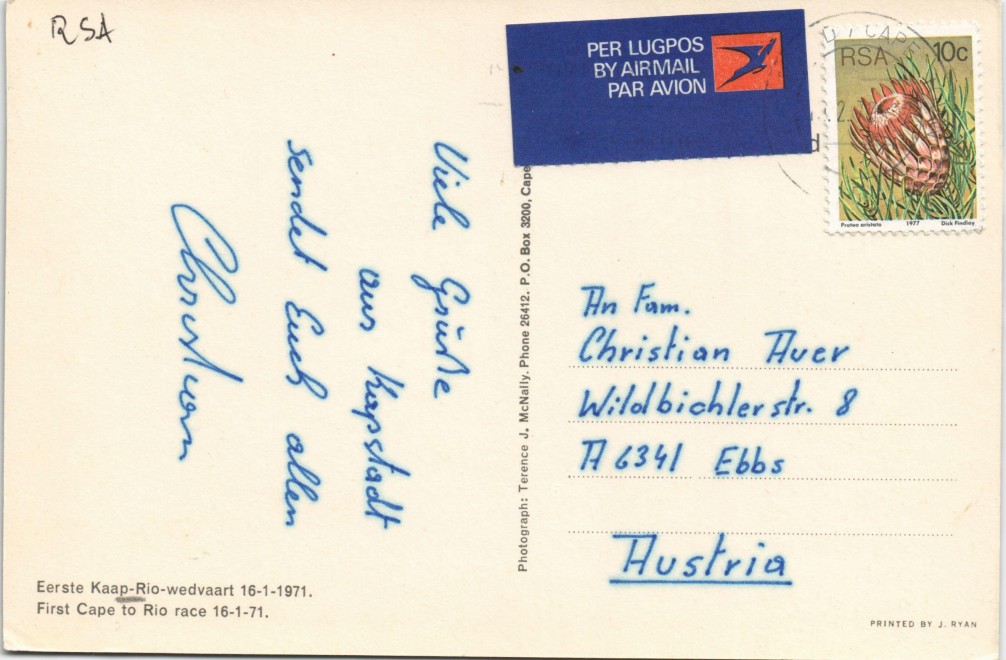 RSA
PER LUGPOS
BY AIRMAIL
PAR AVION
RSA 10c
Protea aristata 1977 Dick Findlay
CAPE
Viele Grüße
aus Kapstadt
sendet Euch allen
Christian
Photograph: Terence J. McNally. Phone 26412. P.O. Box 3200, Cape
An Fam.
Christian Auer
Wildbichlerstr. 8
A 6341 Ebbs
Austria
Eerste Kaap-Rio-wedvaart 16-1-1971.
First Cape to Rio race 16-1-71.
PRINTED BY J. RYAN